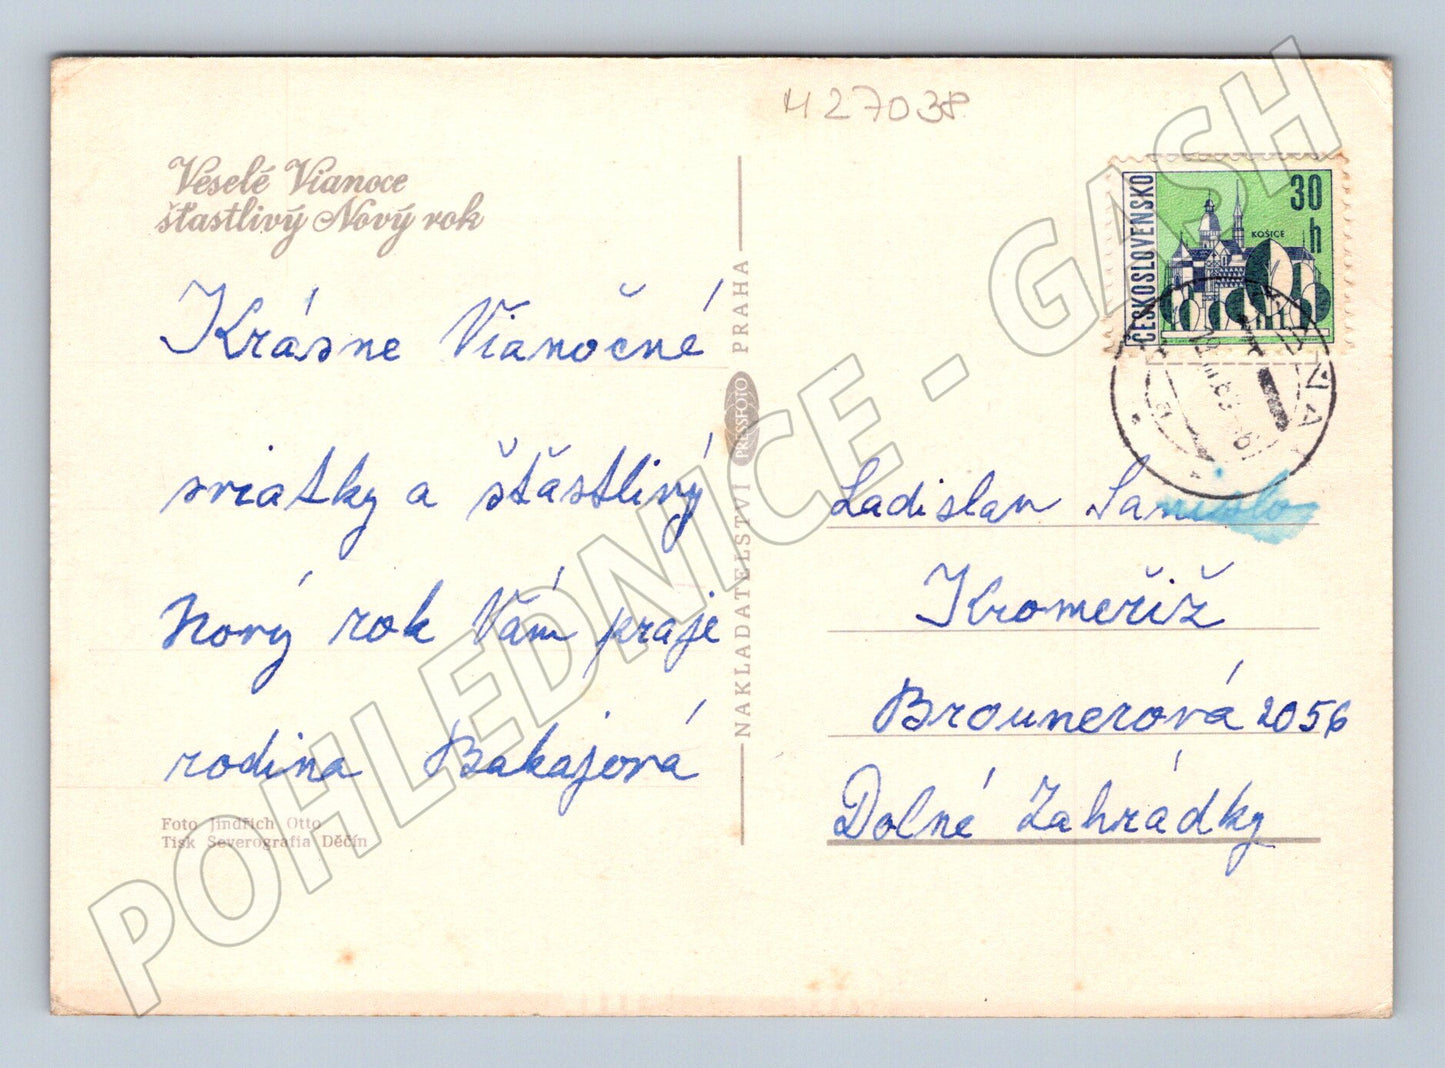 H 27038
Veselé Vianoce
šťastlivý Nový rok
Krásne Vianočné
sviatky a šťastlivý
Nový rok Vám praje
rodina Bakajová
Foto Jindřich Otto
Tisk Severografia Děčín
NAKLADATELSTVÍ PRESSFOTO PRAHA
ČESKOSLOVENSKO
30
h
KOŠICE
Ladislav Sanislo
Kromeřiž
Brounerová 2056
Dolné Zahrádky
POHLEDNICE - GASH